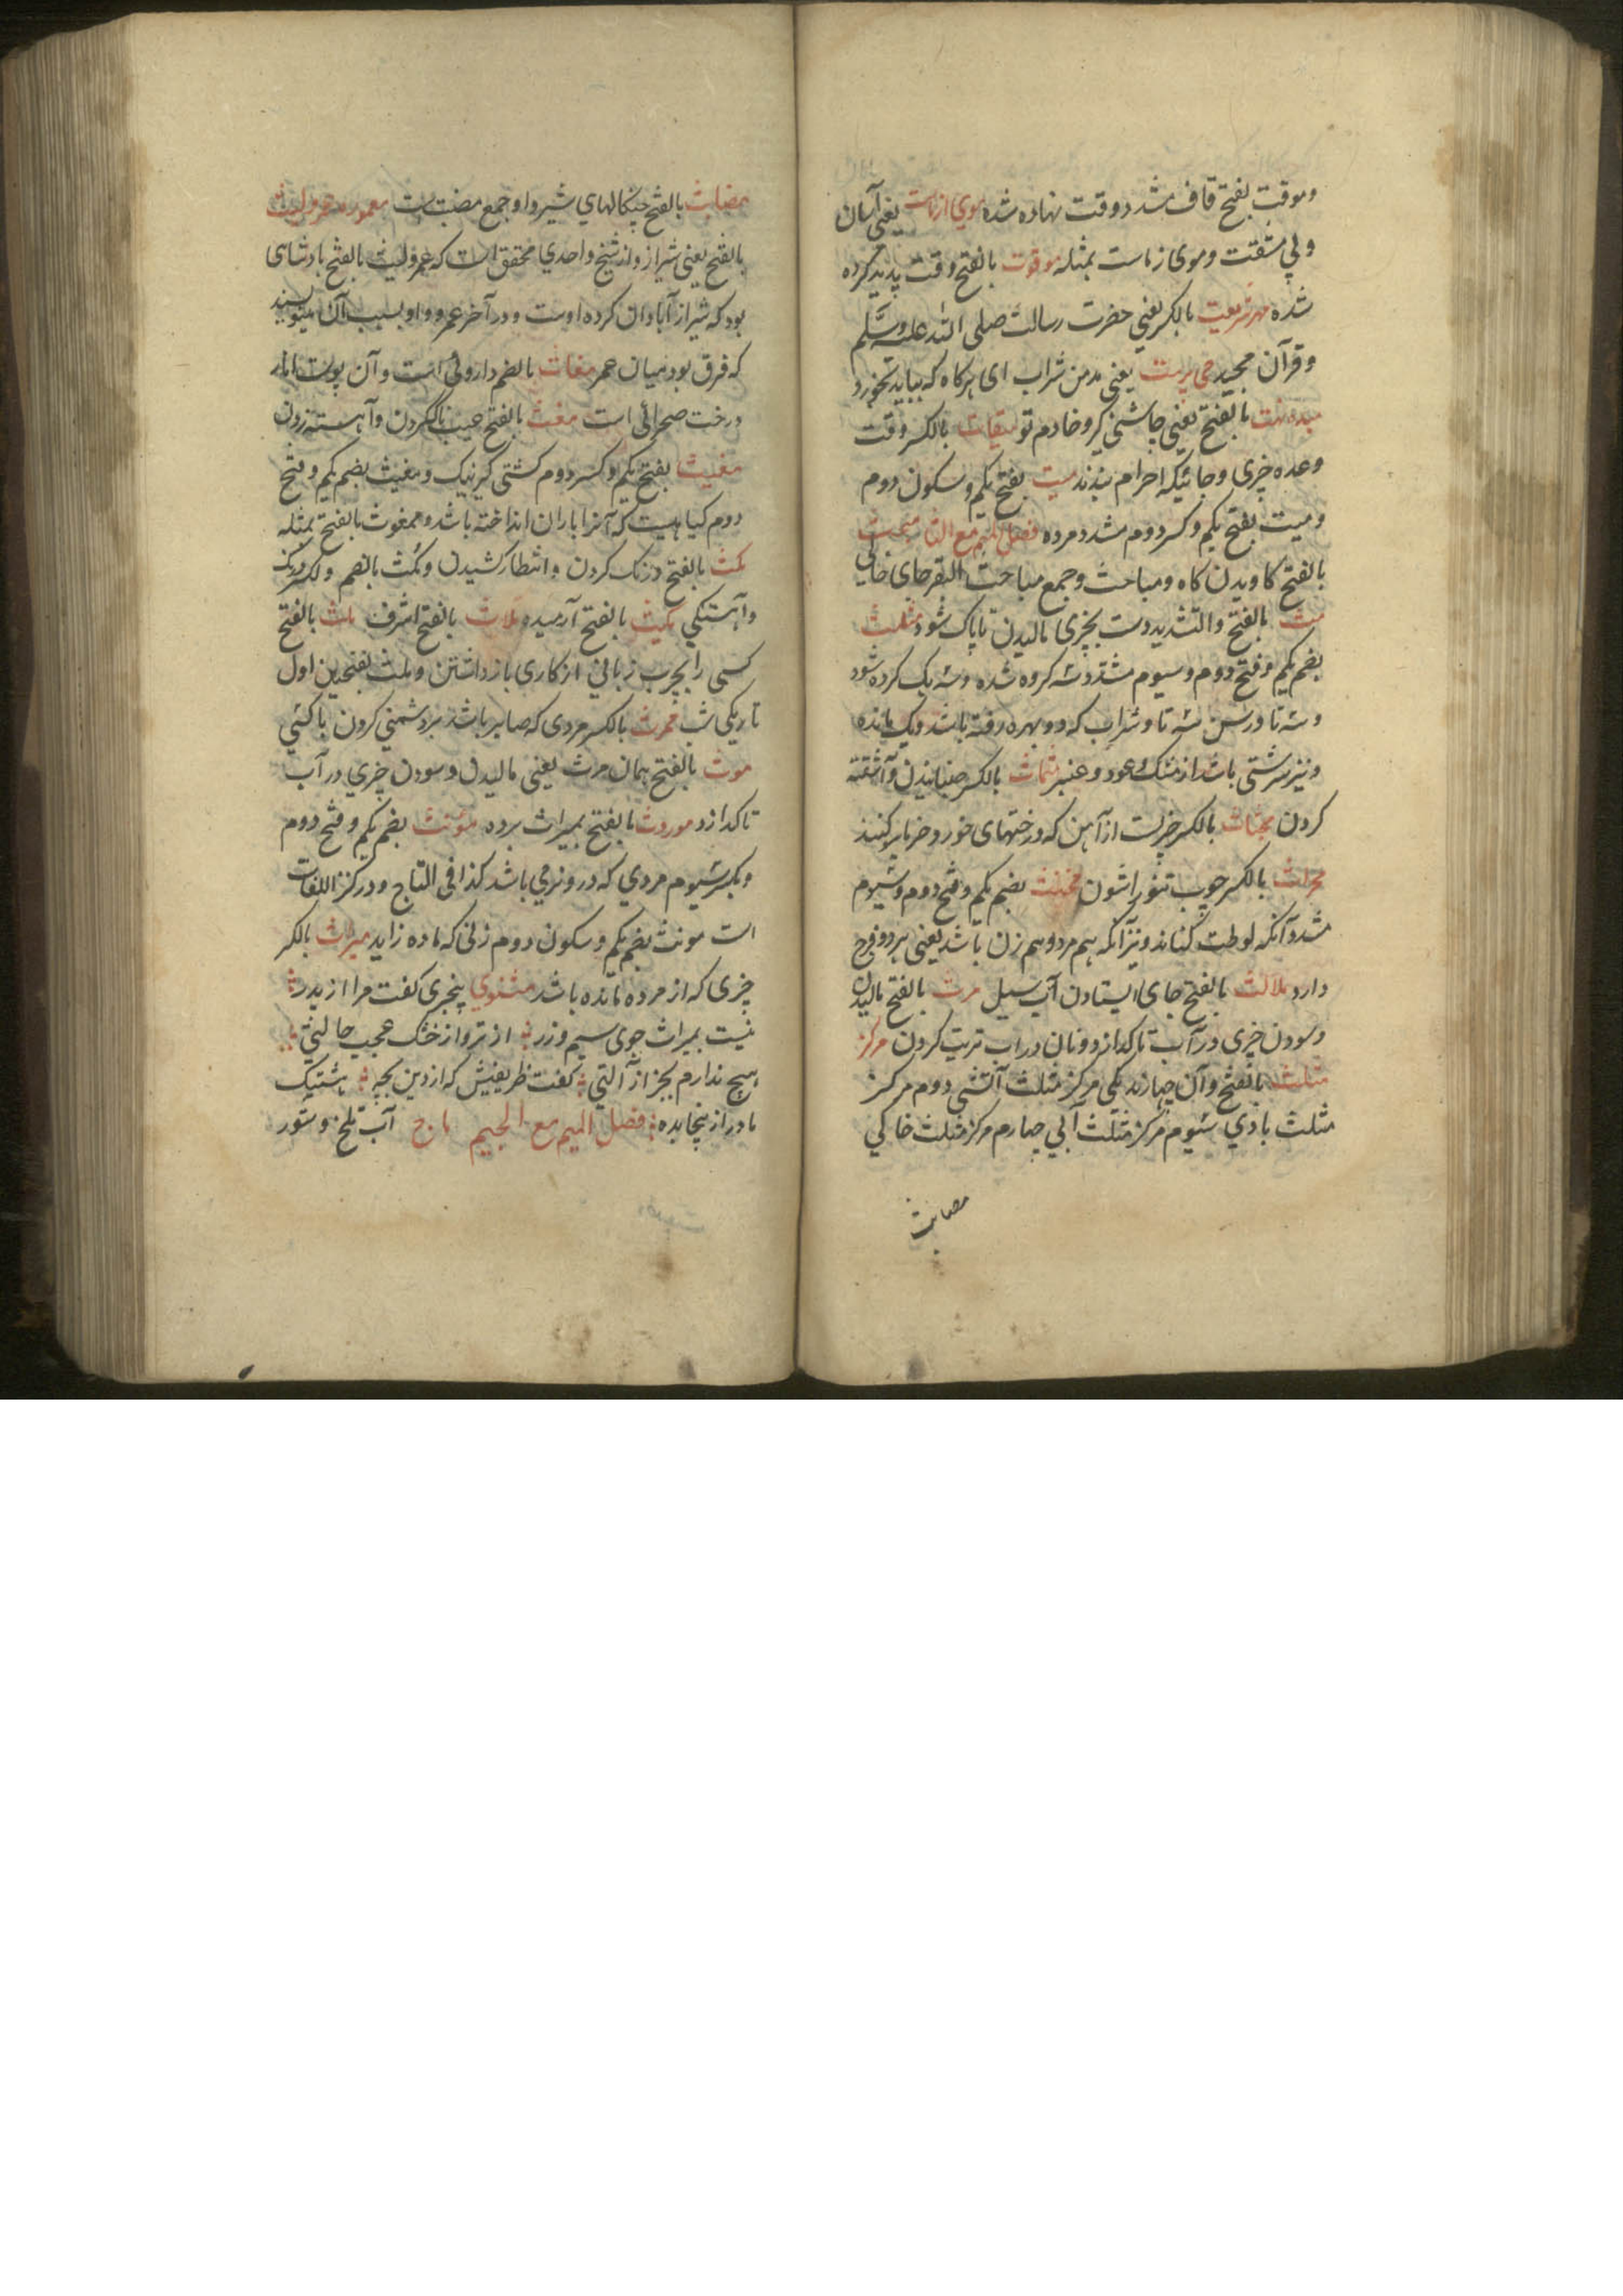 وموقت بفتح قاف مشدد وقت نهاده شده موی از ماست یعنی آسان
وبی مشقت وموی زماست بمثله موقوت بالفتح وقت پدید کرده
شده مهر شریعت بالکسر یعنی حضرت رسالت صلی الله علیه وسلم
وقرآن مجید می پرست یعنی مدمن شراب ای هرکاه که بیابد بخورد
بالفتح یعنی چاشنی کیر وخادم میقات بالکسر وقت
وعده چیزی وجائیکه احرام بندند میت بفتح یکم وسکون دوم
ومیت بفتح یکم وکسر دوم مشدد مرده فصل المیم مع الثا مبحث
بالفتح کاویدن کاه ومباحث وجمع مباحث البقر جای خالی
مث بالفتح والتشدید دست بچیزی مالیدن تا پاک شود مثلث
بضم یکم وفتح دوم وسیوم مشدد سه کروه شده وسه یک کرده شود
وسه تا ورسن سه تا وشراب که دو بهره رفته باشد ویک مانده
ونیز سرشتی باشد از مشک وعود وعنبر بالکسر جنبانیدن وآشفته
کردن مجثاث بالکسر چیزیست از آهن که درختهای خورد خرما بر کنند
محراث بالکسر چوب تنور آشون مخنث بضم یکم وفتح دوم وسیوم
مشدد آنکه لوطت کناند ونیز آنکه هم مرد وهم زن باشد یعنی هر دو فرج
دارد بالفتح جای ایستادن آب سیل مرث بالفتح مالیدن
وسودن چیزی در آب تا کدازد ونان در آب تریت کردن مرکز
مثلث بالفتح وآن چهارند یکی مرکز مثلث آتشی دوم مرکز
مثلث بادی سیوم مرکز مثلث آبی چهارم مرکز مثلث خاکی
مضابث
مضابث بالفتح چنکالهای شیر واو جمع مضبث است معموره عمرولیث
بالفتح یعنی شیراز واز شیخ واحدی محقق است که عمرولیث بالفتح بادشاهی
بود که شیراز آبادان کرده اوست ودر آخر عمرو واو بسبب آن مینویسند
که فرق بود میان عمر مغاث بالضم داروئی است وآن پوست انار
درخت صحرائی است مغث بالفتح عیب ناک کردن وآهسته زدن
مغیث بفتح یکم وکسر دوم کشتی کیر نیک ومغیث بضم یکم وفتح
دوم کیاهیست که آنرا باران انداخته باشد وممغوث بالفتح بمثله
مکث بالفتح درنک کردن وانتظار کشیدن ومکث بالضم والکسر درنک
وآهستکی مکیث بالفتح آرمیده ملاث بالفتح اشرف ملث بالفتح
کسی را بچرب زبانی از کاری باز داشتن وملث بفتحتین اول
تاریکی شب ممرث بالکسر مردی که صابر باشد بر دشمنی کردن با کسی
موث بالفتح همان مرث یعنی مالیدن وسودن چیزی در آب
تا کدازد موروث بالفتح بمیراث برده مؤنث بضم یکم وفتح دوم
وبکسر سیوم مردی که درو نرمی باشد کذا فی التاج ودر کنز اللغات
است مونث بضم یکم وسکون دوم زنی که ماده زاید میراث بالکسر
چیزی که از مرده مانده باشد مثنوی پنجری کفت مرا از پدر
نیست بمیراث جوی سیم وزر از تر واز خشک عجب حالتی
هیچ ندارم بجز از آلتی کفت ظریفیش که از دین بچه
مادر از فصل المیم مع الجیم ماج آب تلخ وشور